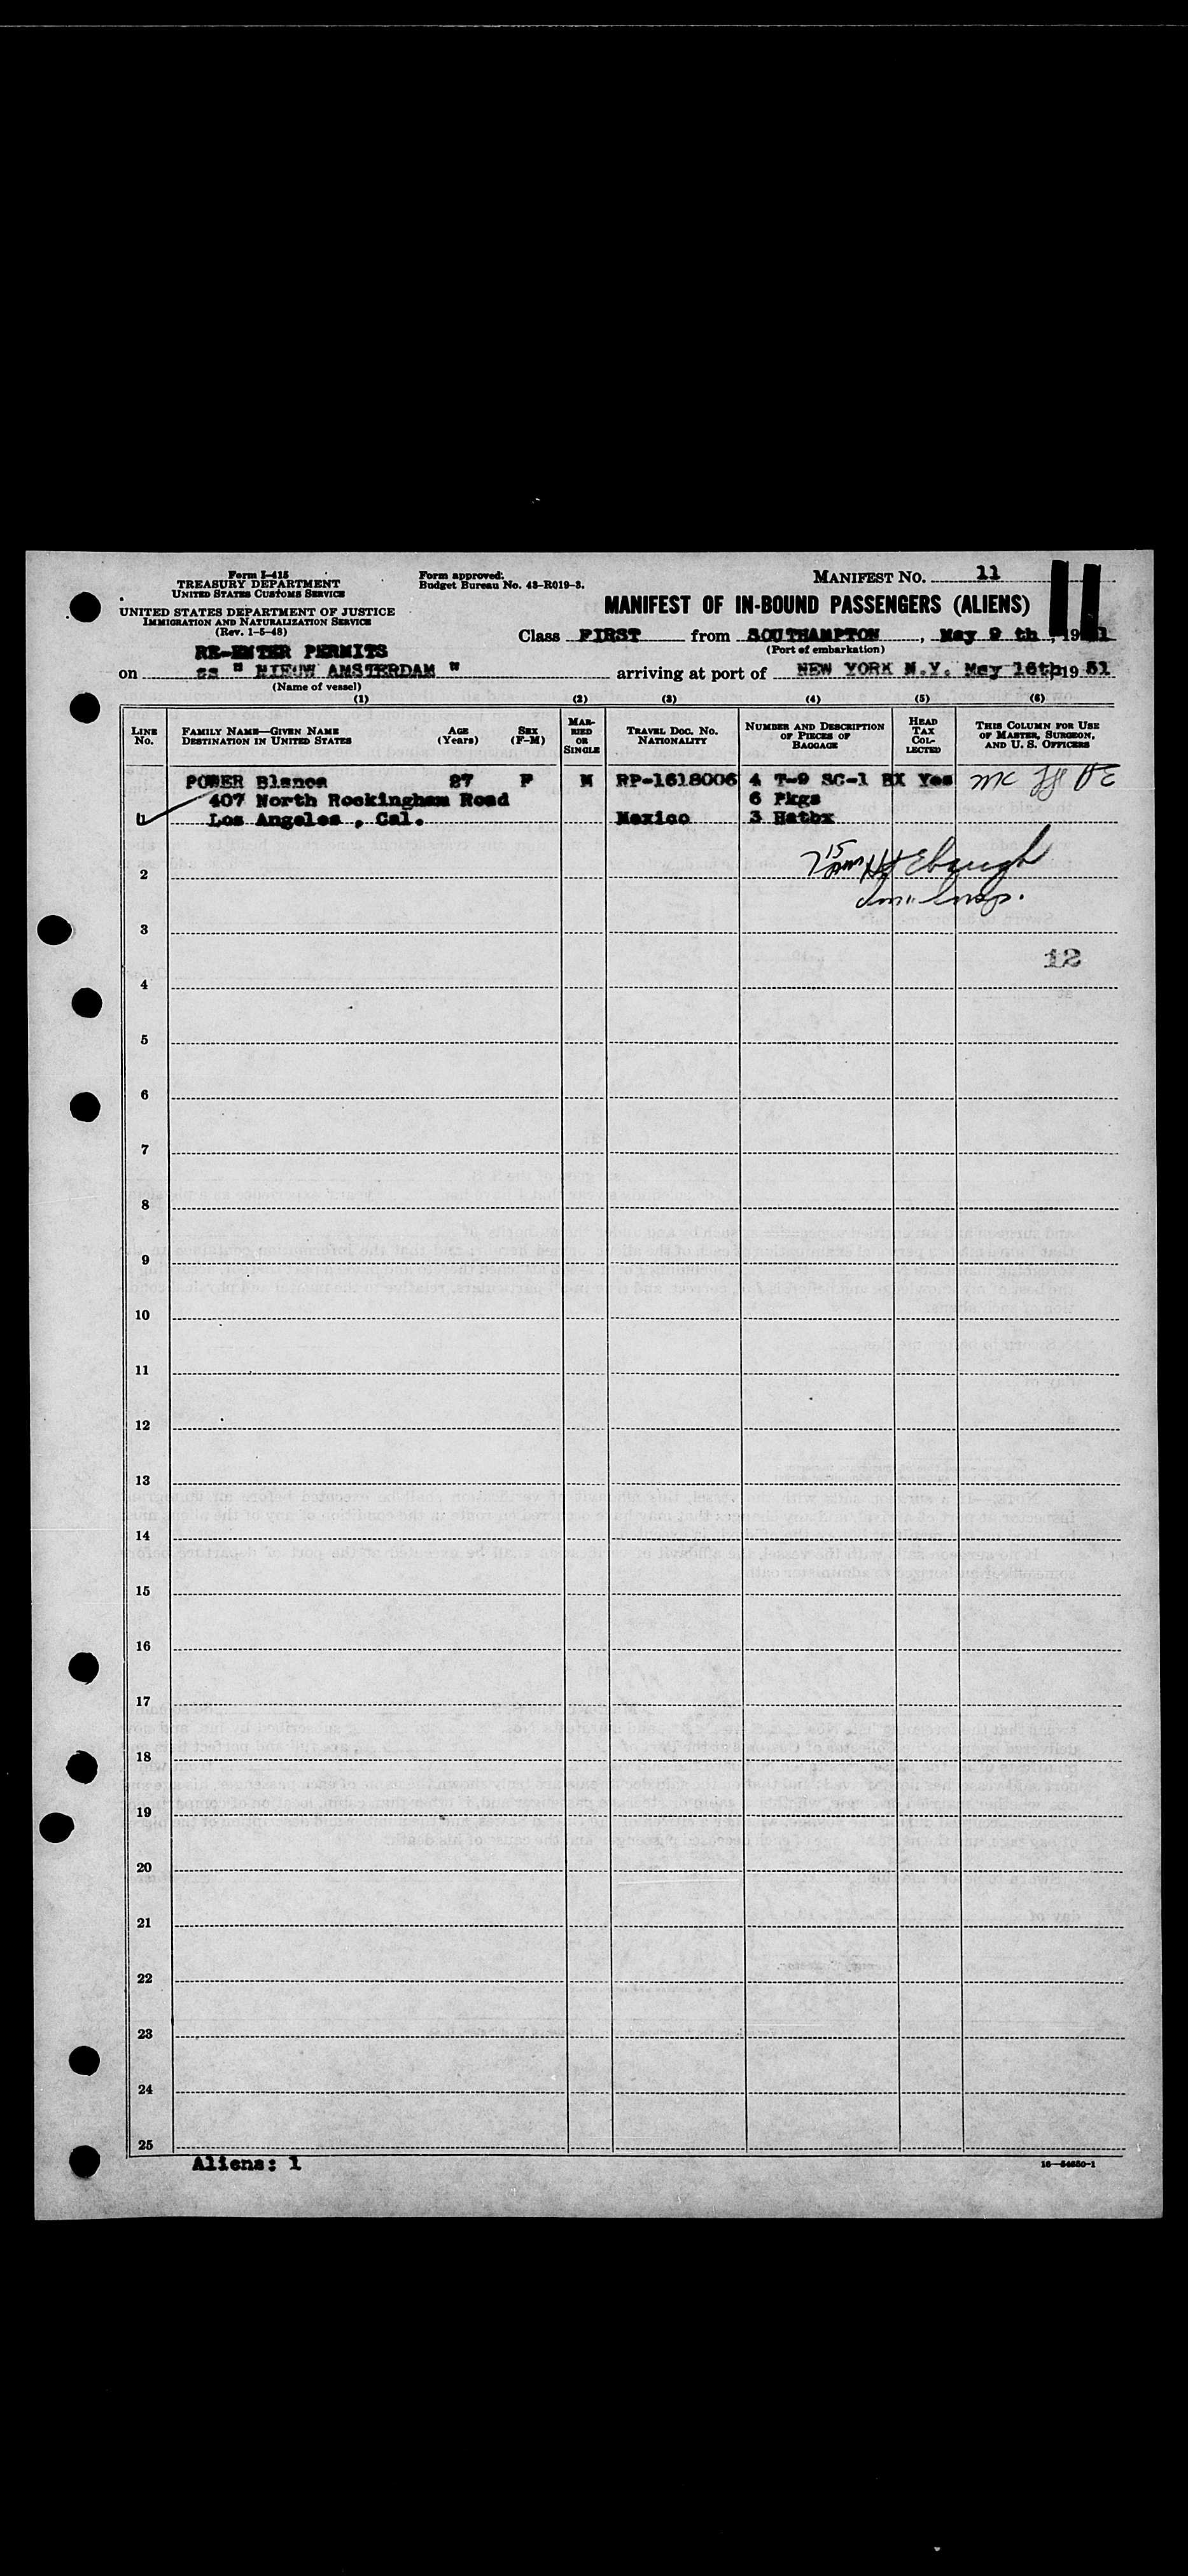 Form I-415
TREASURY DEPARTMENT
UNITED STATES CUSTOMS SERVICE
UNITED STATES DEPARTMENT OF JUSTICE
IMMIGRATION AND NATURALIZATION SERVICE
(Rev. 1-5-48)
Form approved.
Budget Bureau No. 43-R019-3.
MANIFEST NO. 11
11
MANIFEST OF IN-BOUND PASSENGERS (ALIENS)
Class FIRST from SOUTHAMPTON, May 9 th, 19
(Port of embarkation)
RE-ENTER PERMITS
on ss " NIEUW AMSTERDAM " arriving at port of NEW YORK N.Y. May 16th 19 51
(Name of vessel)
(1) (2) (3) (4) (5) (6)
LINE NO. FAMILY NAME—GIVEN NAME DESTINATION IN UNITED STATES AGE (Years) SEX (F-M) MARRIED OR SINGLE TRAVEL DOC. NO. NATIONALITY NUMBER AND DESCRIPTION OF PIECES OF BAGGAGE HEAD TAX COLLECTED THIS COLUMN FOR USE OF MASTER, SURGEON, AND U. S. OFFICERS
POWER Blanca 27 F M RP-1618006 4 T-9 SC-1 BX Yes
407 North Rockingham Road 6 Pkgs
Los Angeles , Cal. Mexico 3 Hatbx
2
3
12
4
5
6
7
8
9
10
11
12
13
14
15
16
17
18
19
20
21
22
23
24
25
Aliens: 1